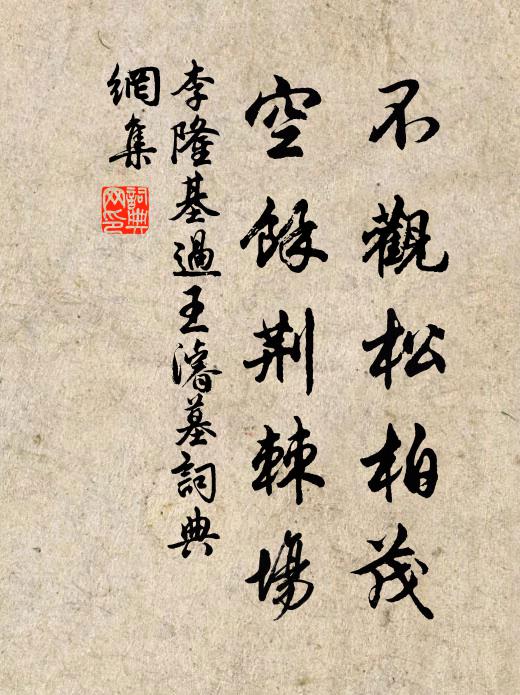 不觀松柏茂
空餘荆棘場
李隆基過王濬墓詞典
網集
詞典
网印